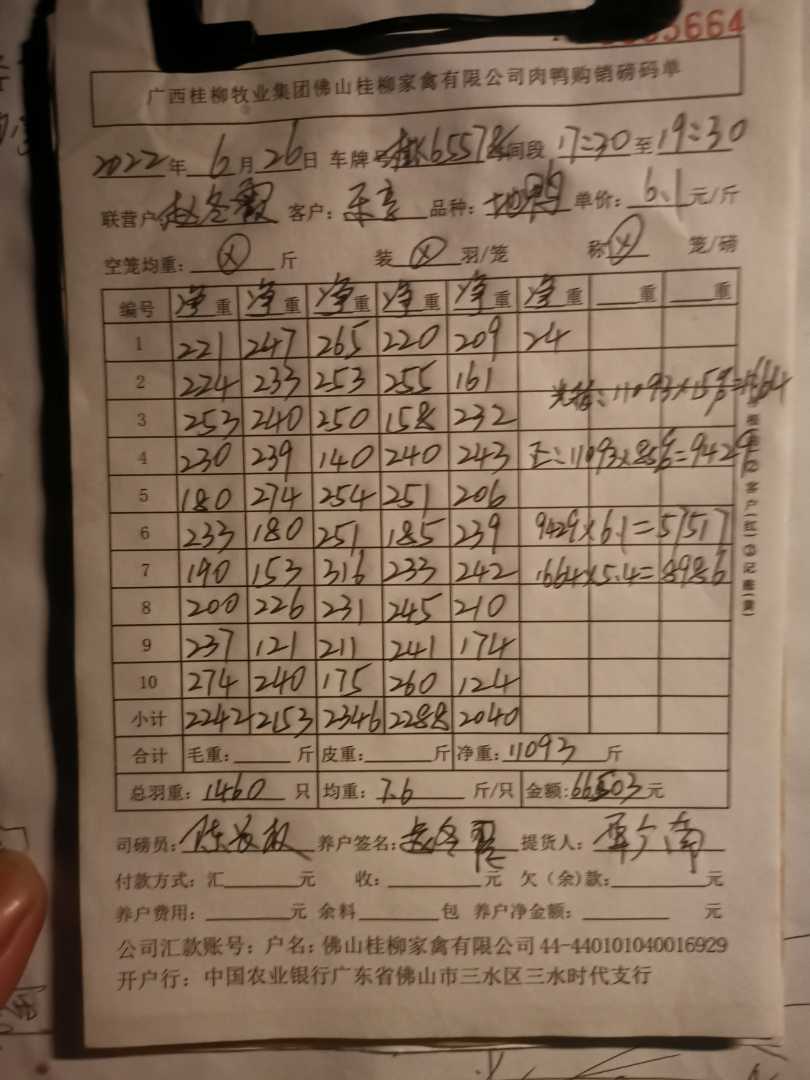 5664
广西桂柳牧业集团佛山桂柳家禽有限公司肉鸭购销磅码单
2022年 6月 26日 车牌号 6557 间段 17:30 至 19:30
联营户: 赵冬 客户: 品种: 地鸭 单价: 6.1 元/斤
空笼均重: X 斤 装 X 羽/笼 称 X 笼/磅
编号 净重 净重 净重 净重 净重 净重 重 重
1 221 247 265 220 209 24
2 224 233 253 255 161 11093×15%=1664
3 253 240 250 158 232
4 230 239 140 240 243 正:11093×85%=9429
5 180 274 254 251 206
6 233 180 251 185 239 9429×6.1=57517
7 190 153 316 233 242 1664×5.4=8986
8 200 226 231 245 210
9 237 121 211 241 174
10 274 240 175 260 124
小计 2242 2153 2346 2288 2040
合计 毛重: 斤 皮重: 斤 净重: 11093 斤
总羽重: 1460 只 均重: 7.6 斤/只 金额: 66503 元
司磅员: 陈 养户签名: 提货人: 南
付款方式: 汇 元 收: 元 欠(余)款: 元
养户费用: 元 余料 包 养户净金额: 元
公司汇款账号: 户名: 佛山桂柳家禽有限公司 44-440101040016929
开户行: 中国农业银行广东省佛山市三水区三水时代支行
②客户(红)③记账(黄)